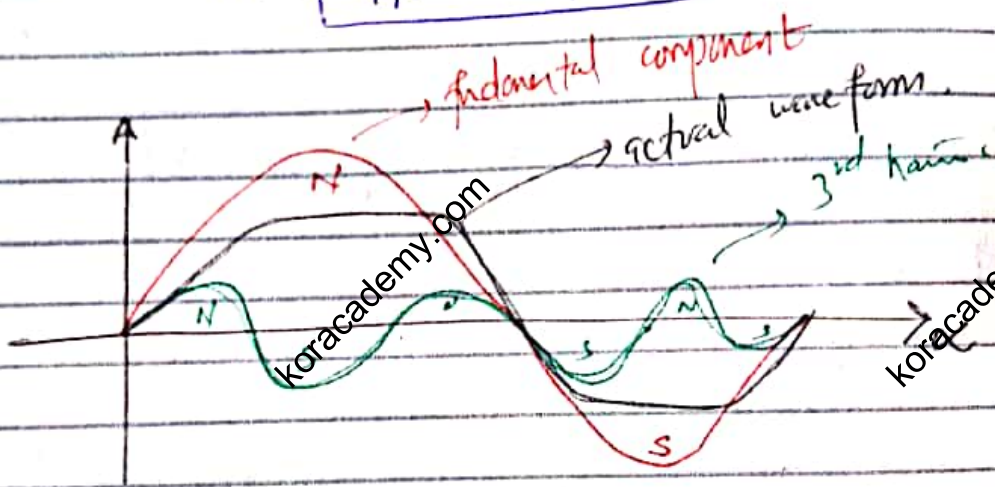 fndamental component
actual wave form.
3rd
N
N
N
S
N
S
S
koracademy.com